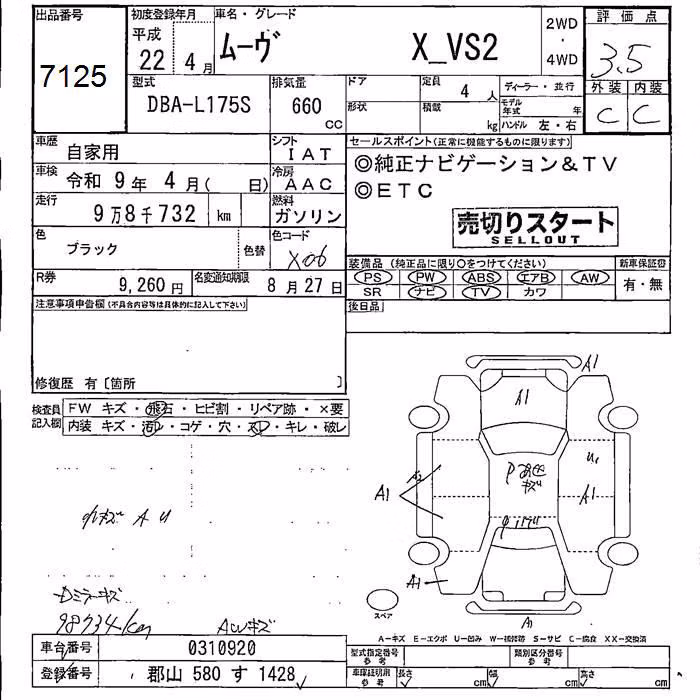 出品番号 初度登録年月 車名・グレード 2WD 評価点
7125 平成 22 4月 ムーヴ X_VS2 ・ 4WD 3.5
型式 排気量 ドア 定員 4人 ディーラー・並行 外装 内装
DBA-L175S 660 cc 形状 積載 kg モデル年式 年 C C
ハンドル 左・右
車歴 自家用 シフト IAT セールスポイント(正常に機能するものに限ります)
車検 令和 9年 4月( 日) 冷房 AAC ◎純正ナビゲーション&TV
走行 9万8千732 km 燃料 ガソリン ◎ETC
売切りスタート
SELLOUT
色 ブラック 色替 色コード X06
装備品(純正品に限り○をつけてください) 新車保証書
R券 9,260円 名変通知期限 8月27日 PS PW ABS エアB AW 有・無
SR ナビ TV カワ
注意事項申告欄(不具合内容等は具体的に記入して下さい) 後日品
修復歴 有〔箇所 〕
検査員記入欄 FW キズ・飛石・ヒビ割・リペア跡・×要
内装 キズ・汚レ・コゲ・穴・スレ・キレ・破レ
A1
A1
U1
A2
A1
A1
A1
A1
Dミラーキズ
98734km
AWキズ
スペア
A-キズ E-エクボ U-凹み W-補修跡 S-サビ C-腐食 XX-交換済
車台番号 0310920 型式指定番号 参考 類別区分番号 参考
登録番号 郡山 580 す 1428 車庫証明用 参考 長さ cm 幅 cm 高さ cm